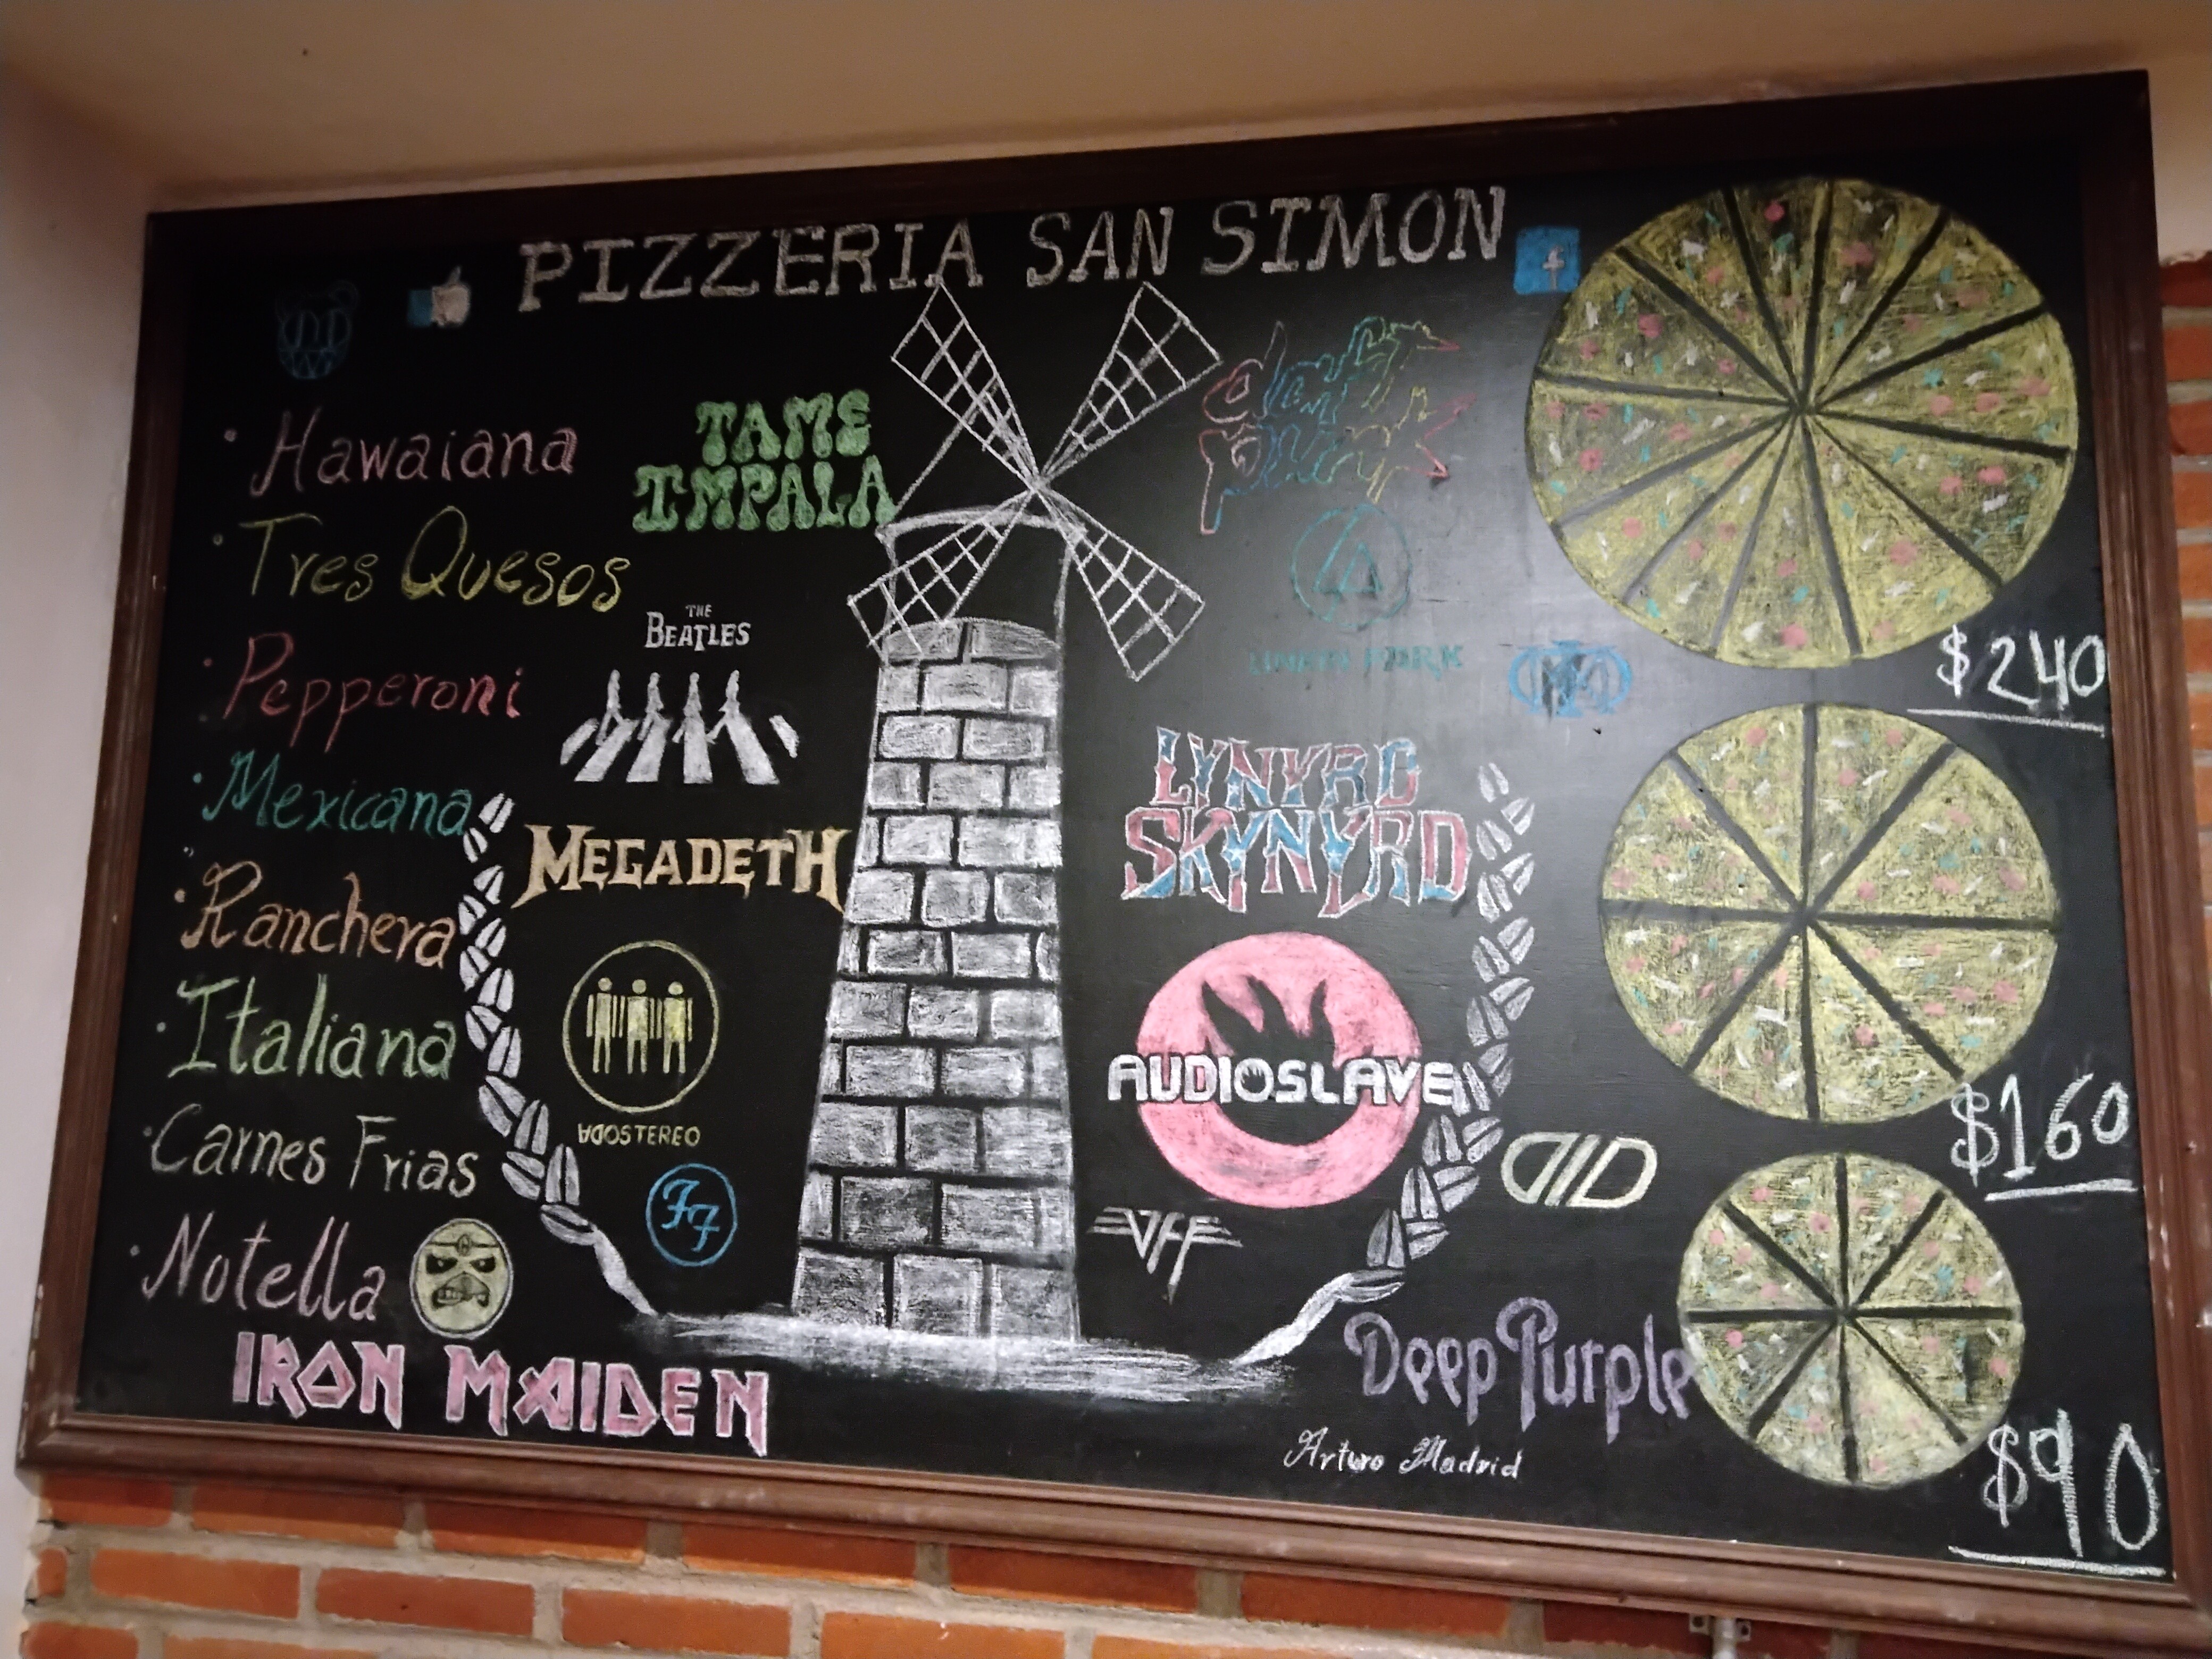 PIZZERIA SAN SIMON
f
· Hawaiana
· Tres Quesos
· Pepperoni
· Mexicana
· Ranchera
· Italiana
· Carnes Frias
· Notella
TAME
IMPALA
THE
BEATLES
MEGADETH
ADOSTEREO
FF
IRON MAIDEN
daft
punk
LINKIN PARK
LYNYRD
SKYNYRD
AUDIOSLAVE
Deep Purple
Arturo Madrid
$240
$160
$90